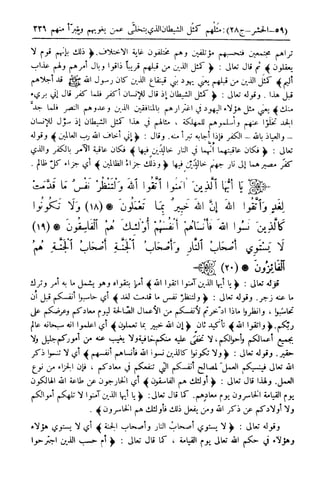 (٥٩ - الحشر - ج٢٨) : مثلهم كمثل الشيطان الذي يتخلى عمن يغويهم ويتبرأ منهم ٢٣٩
تراهم مجتمعين فتحسبهم مؤتلفين وهم مختلفون غاية الاختلاف. ﴿ ذلك بأنهم قوم لا
يعقلون ﴾ ثم قال تعالى : ﴿ كمثل الذين من قبلهم قريباً ذاقوا وبال أمرهم ولهم عذاب
أليم ﴾ كمثل الذين من قبلهم يعني يهود بني قينقاع الذين كان رسول الله قد أجلاهم
قبل هذا . وقوله تعالى : ﴿ كمثل الشيطان إذ قال للإنسان أكفر فلما كفر قال إني بريء
منك ﴾ يعني مثل هؤلاء اليهود في اغترارهم بالمنافقين الذين وعدوهم النصر فلما جد
الجد تخلوا عنهم وأسلموهم للمهلكة ، مثالهم في هذا كمثل الشيطان إذ سول للإنسان
- والعياذ بالله - الكفر فإذا أجابه تبرأ منه . وقال : ﴿ إني أخاف الله رب العالمين ﴾ وقوله
تعالى : ﴿ فكان عاقبتهما أنهما في النار خالدين فيها ﴾ فكان عاقبة الآمر بالكفر والذي
كفر مصيرهما إلى نار جهنم خالدين فيها ﴿ وذلك جزاء الظالمين ﴾ أي جزاء كل ظالم .
يَا أَيُّهَا الَّذِينَ آمَنُوا اتَّقُوا اللَّهَ وَلْتَنظُرْ نَفْسٌ مَّا قَدَّمَتْ
لِغَدٍ وَاتَّقُوا اللَّهَ إِنَّ اللَّهَ خَبِيرٌ بِمَا تَعْمَلُونَ (١٨) وَلَا تَكُونُوا
كَالَّذِينَ نَسُوا اللَّهَ فَأَنسَاهُمْ أَنفُسَهُمْ أُولَٰئِكَ هُمُ الْفَاسِقُونَ (١٩)
لَا يَسْتَوِي أَصْحَابُ النَّارِ وَأَصْحَابُ الْجَنَّةِ أَصْحَابُ الْجَنَّةِ هُمُ
الْفَائِزُونَ (٢٠)
قوله تعالى : ﴿ يا أيها الذين آمنوا اتقوا الله ﴾ أمر بتقواه وهو يشمل ما به أمر وترك
ما عنه زجر . وقوله تعالى : ﴿ ولتنظر نفس ما قدمت لغد ﴾ أي حاسبوا أنفسكم قبل أن
تحاسبوا ، وانظروا ماذا ادخرتم لأنفسكم من الأعمال الصالحة ليوم معادكم وعرضكم على
ربكم . ﴿ واتقوا الله ﴾ تأكيد ثان ﴿ إن الله خبير بما تعملون ﴾ أي اعلموا انه سبحانه عالم
بجميع أعمالكم وأحوالكم ، لا تخفى عليه منكم خافية ولا يغيب عنه من أموركم جليل ولا
حقير . وقوله تعالى : ﴿ ولا تكونوا كالذين نسوا الله فأنساهم أنفسهم ﴾ أي لا تنسوا ذكر
الله تعالى فينسيكم العمل لمصالح أنفسكم التي تنفعكم في معادكم ، فإن الجزاء من نوع
العمل . ولهذا قال تعالى : ﴿ أولئك هم الفاسقون ﴾ أي الخارجون عن طاعة الله الهالكون
يوم القيامة الخاسرون يوم معادهم . كما قال تعالى : ﴿ يا أيها الذين آمنوا لا تلهكم أموالكم
ولا أولادكم عن ذكر الله ومن يفعل ذلك فأولئك هم الخاسرون ﴾ .
وقوله تعالى : ﴿ لا يستوي أصحاب النار وأصحاب الجنة ﴾ أي لا يستوي هؤلاء
وهؤلاء في حكم الله تعالى يوم القيامة ، كما قال تعالى : ﴿ أم حسب الذين اجترحوا